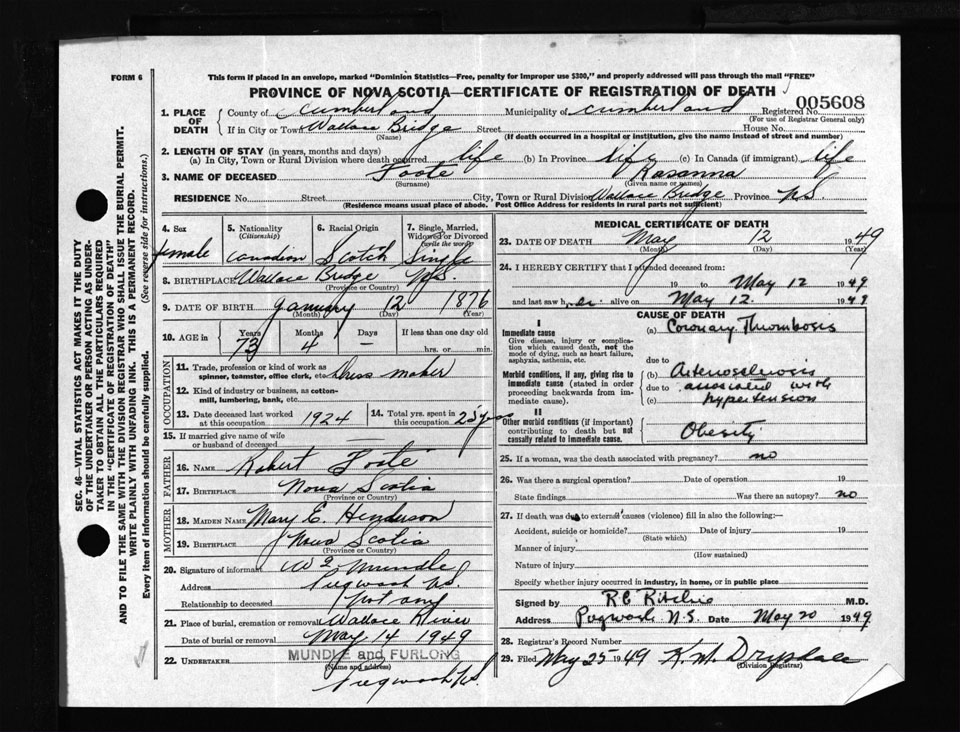 FORM 6
This form if placed in an envelope, marked "Dominion Statistics—Free, penalty for improper use $300," and properly addressed will pass through the mail "FREE"
PROVINCE OF NOVA SCOTIA—CERTIFICATE OF REGISTRATION OF DEATH
005608
1. PLACE OF DEATH
County of Cumberland Municipality of Cumberland Registered No.
(For use of Registrar General only)
If in City or Town Wallace Bridge Street House No.
(Name) (If death occurred in a hospital or institution, give the name instead of street and number)
2. LENGTH OF STAY (in years, months and days)
(a) In City, Town or Rural Division where death occurred life (b) In Province life (c) In Canada (if immigrant) life
3. NAME OF DECEASED Foote Rasanna
(Surname) (Given name or names)
RESIDENCE No. Street City, Town or Rural Division Wallace Bridge Province N.S.
(Residence means usual place of abode. Post Office Address for residents in rural parts not sufficient)
4. Sex
female
5. Nationality
(Citizenship)
Canadian
6. Racial Origin
Scotch
7. Single, Married, Widowed or Divorced
(write the word)
Single
8. BIRTHPLACE Wallace Bridge N.S.
(Province or Country)
9. DATE OF BIRTH January 12 1876
(Month) (Day) (Year)
10. AGE in
Years Months Days If less than one day old
73 4 — hrs. or min.
OCCUPATION
11. Trade, profession or kind of work as spinner, teamster, office clerk, etc. Dress maker
12. Kind of industry or business, as cotton-mill, lumbering, bank, etc.
13. Date deceased last worked at this occupation 1924
14. Total yrs. spent in this occupation 25 yrs
15. If married give name of wife or husband of deceased
FATHER
16. NAME Robert Foote
17. BIRTHPLACE Nova Scotia
(Province or Country)
MOTHER
18. MAIDEN NAME Mary E. Henderson
19. BIRTHPLACE Nova Scotia
(Province or Country)
20. Signature of informant Mundle
Address Pugwash N.S.
Relationship to deceased Not any
21. Place of burial, cremation or removal Wallace River
Date of burial or removal May 14 1949
22. UNDERTAKER MUNDLE and FURLONG
(Name and address)
Pugwash N.S.
MEDICAL CERTIFICATE OF DEATH
23. DATE OF DEATH May 12 1949
(Month) (Day) (Year)
24. I HEREBY CERTIFY that I attended deceased from:
19 to May 12 1949
and last saw her alive on May 12. 1949
CAUSE OF DEATH
I
Immediate cause
Give disease, injury or complication which caused death, not the mode of dying, such as heart failure, asphyxia, asthenia, etc.
(a) Coronary Thrombosis
due to
Morbid conditions, if any, giving rise to immediate cause (stated in order proceeding backwards from immediate cause).
(b) Arteriosclerosis
due to associated with
(c) hypertension
II
Other morbid conditions (if important) contributing to death but not causally related to immediate cause.
Obesity
25. If a woman, was the death associated with pregnancy? no
26. Was there a surgical operation? Date of operation 19
State findings Was there an autopsy? no
27. If death was due to external causes (violence) fill in also the following:—
Accident, suicide or homicide? Date of injury 19
(State which)
Manner of injury
(How sustained)
Nature of injury
Specify whether injury occurred in industry, in home, or in public place
Signed by R C Ritchie M.D.
Address Pugwash N.S. Date May 20 1949
28. Registrar's Record Number
29. Filed May 25 1949 K. M. Drysdale
(Division Registrar)
SEC. 46—VITAL STATISTICS ACT MAKES IT THE DUTY
OF THE UNDERTAKER OR PERSON ACTING AS UNDER-
TAKER TO OBTAIN ALL THE PARTICULARS REQUIRED
IN THE "CERTIFICATE OF REGISTRATION OF DEATH"
AND TO FILE THE SAME WITH THE DIVISION REGISTRAR WHO SHALL ISSUE THE BURIAL PERMIT.
WRITE PLAINLY WITH UNFADING INK. THIS IS A PERMANENT RECORD.
Every item of information should be carefully supplied. (See reverse side for instructions.)